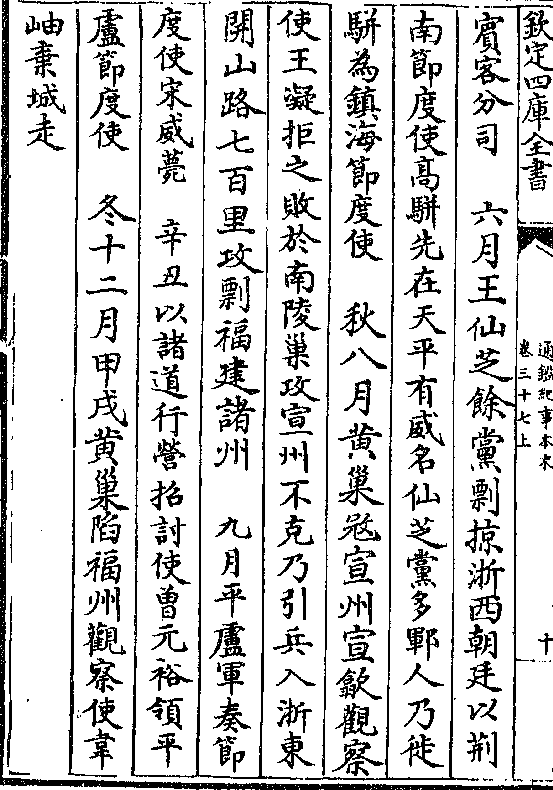 欽定四庫全書
通鑑紀事本末
卷三十七上
十
賓客分司　六月王仙芝餘黨剽掠浙西朝廷以荆
南節度使高駢先在天平有威名仙芝黨多鄆人乃徙
駢為鎮海節度使　秋八月黄巢宼宣州宣歙觀察
使王凝拒之敗於南陵巢攻宣州不克乃引兵入浙東
開山路七百里攻剽福建諸州　九月平盧軍奏節
度使宋威薨　辛丑以諸道行營招討使曽元裕領平
盧節度使　冬十二月甲戌黄巢陷福州觀察使韋
岫棄城走